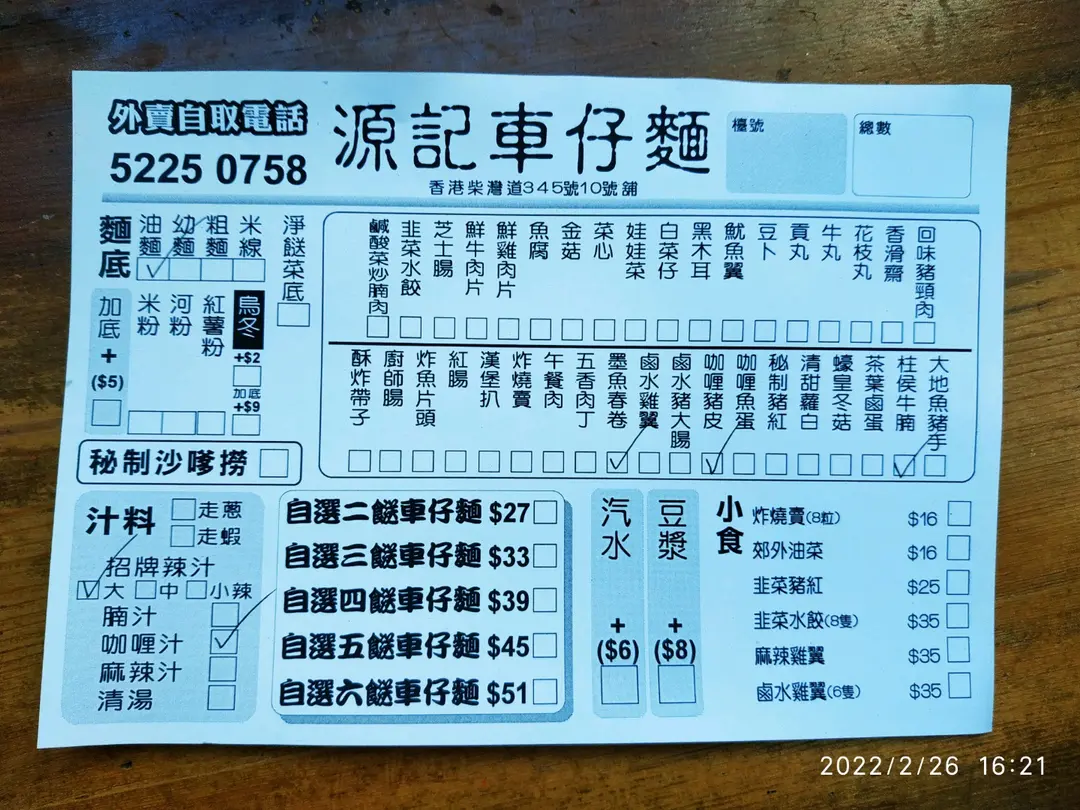 外賣自取電話
5225 0758
源記車仔麵
香港柴灣道345號10號舖
檯號
總數
麵底
油麵
幼麵
粗麵
米線
淨餸菜底
加底
+
($5)
米粉
河粉
紅薯粉
烏冬
+$2
加底
+$9
秘制沙嗲撈
鹹酸菜炒腩肉
韭菜水餃
芝士腸
鮮牛肉片
鮮雞肉片
魚腐
金菇
菜心
娃娃菜
白菜仔
黑木耳
魷魚翼
豆卜
貢丸
牛丸
花枝丸
香滑齋
回味豬頸肉
酥炸帶子
廚師腸
炸魚片頭
紅腸
漢堡扒
炸燒賣
午餐肉
五香肉丁
墨魚春卷
鹵水雞翼
鹵水豬大腸
咖喱豬皮
咖喱魚蛋
秘制豬紅
清甜蘿白
蠔皇冬菇
茶葉鹵蛋
柱侯牛腩
大地魚豬手
汁料
走蔥
走蝦
招牌辣汁
大 中 小辣
腩汁
咖喱汁
麻辣汁
清湯
自選二餸車仔麵 $27
自選三餸車仔麵 $33
自選四餸車仔麵 $39
自選五餸車仔麵 $45
自選六餸車仔麵 $51
汽水
+
($6)
豆漿
+
($8)
小食
炸燒賣(8粒) $16
郊外油菜 $16
韭菜豬紅 $25
韭菜水餃(8隻) $35
麻辣雞翼 $35
鹵水雞翼(6隻) $35
2022/2/26 16:21